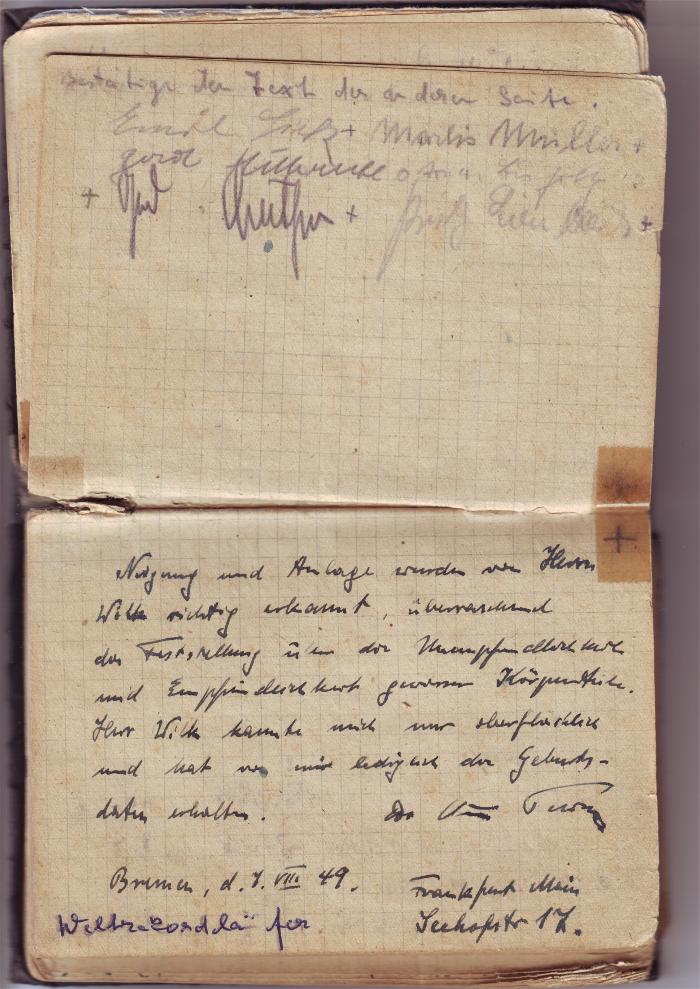 Bestätige den Text der anderen Seite.
Emil + Marlis Müller +
Gerd
+ +
+
+
Neigung und Anlage wurden von Herrn
Wilk richtig erkannt, überraschend
die Feststellung über die Unempfindlichkeit
und Empfindlichkeit gewisser Körperteile.
Herr Wilk kannte mich nur oberflächlich
und hat von mir lediglich die Geburts-
daten erhalten.
Bremen, d. 7. VIII. 49.
Frankfurt Main
Weltrekordläufer
Seehofstr 17.